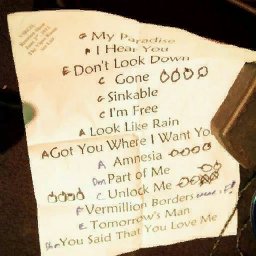 G My Paradise
A I Hear You
E Don't Look Down
C Gone
G Sinkable
C I'm Free
A Look Like Rain
A Got You Where I Want Yo
A Amnesia
Dm Part of Me
C Unlock Me
F Vermillion Borders
E Tomorrow's Man
Dm You Said That You Love Me